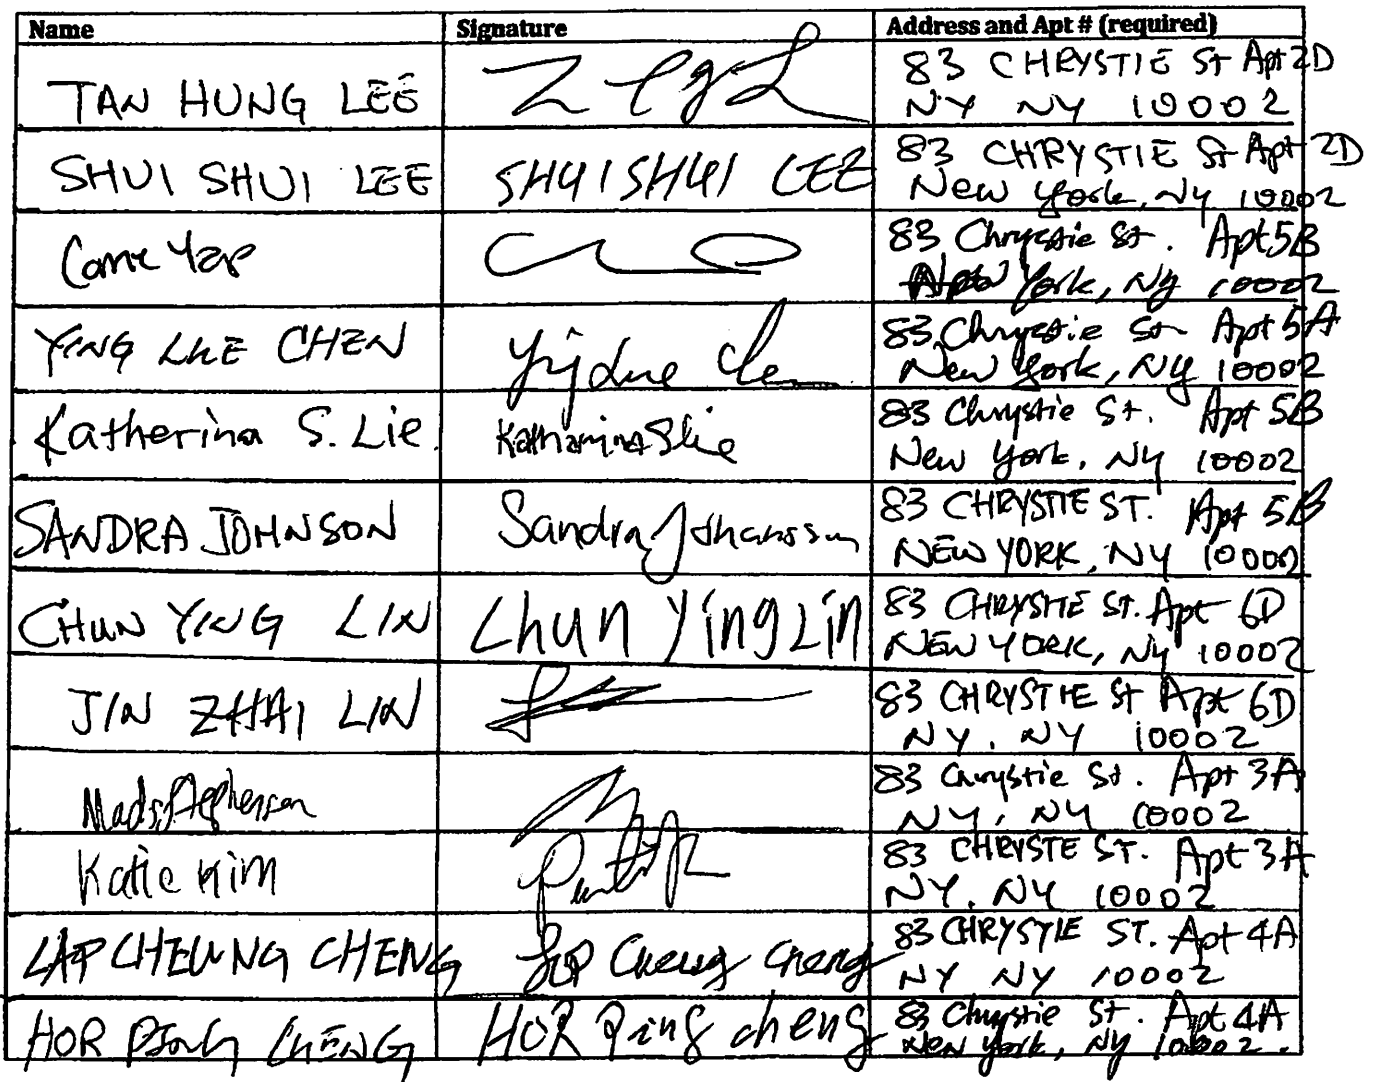 Name Signature Address and Apt # (required)
TAN HUNG LEE 83 CHRYSTIE St Apt 2D
NY NY 10002
SHUI SHUI LEE SHUI SHUI LEE 83 CHRYSTIE St Apt 2D
New York, NY 10002
83 Chrystie St. Apt 5B
York, NY 10002
YING CHEN 83 Chrystie St Apt 5A
New York, NY 10002
Katherina S. Lie. Katharina Slie 83 Chrystie St. Apt 5B
New York, NY 10002
SANDRA JOHNSON Sandra 83 CHRYSTIE ST. Apt 5B
NEW YORK, NY 10002
CHUN YING LIN Chun Ying Lin 83 CHRYSTIE ST. Apt 6D
NEW YORK, NY 10002
JIN ZHAI LIN 83 CHRYSTIE St Apt 6D
NY, NY 10002
83 Chrystie St. Apt 3A
NY, NY 10002
Katie Kim 83 CHRYSTE ST. Apt 3A
NY, NY 10002
LAP CHEUNG CHENG Lap Cheung Cheng 83 CHRYSTIE ST. Apt 4A
NY NY 10002
HOR PING CHENG HOR Ping cheng 83 Chrystie St. Apt 4A
New York, NY 10002.